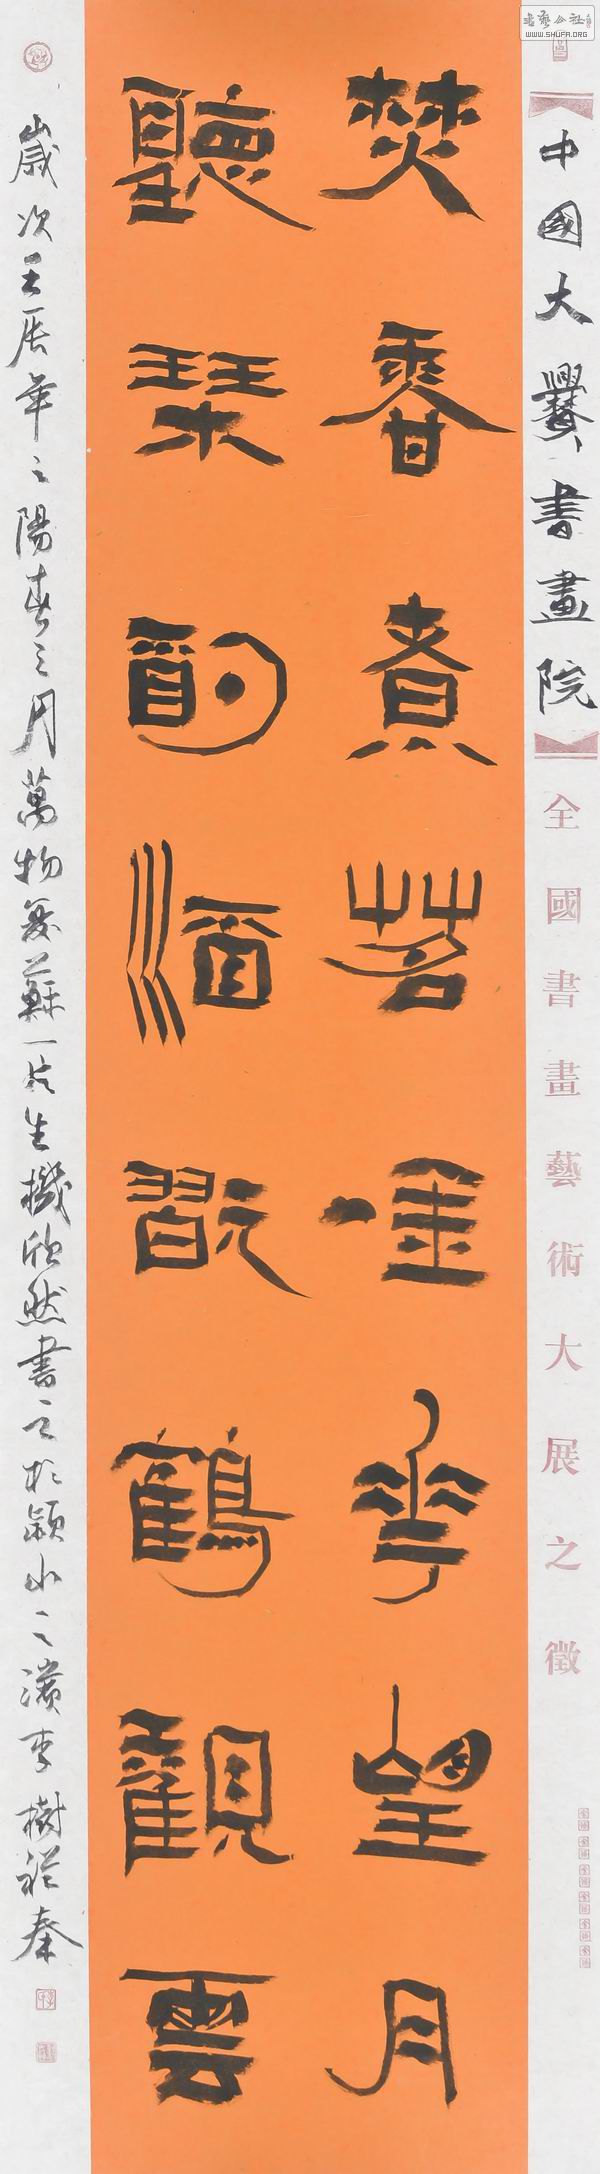 書藝公社
WWW.SHUFA.ORG
中國大爨書畫院
全國書畫藝術大展之徵
焚香煮茗唯花望月
聽琹酌酒翫鶴觀雲
歲次壬辰年之陽春三月萬物復蘇一片生機欣然書之於潁水之濱李樹程奉